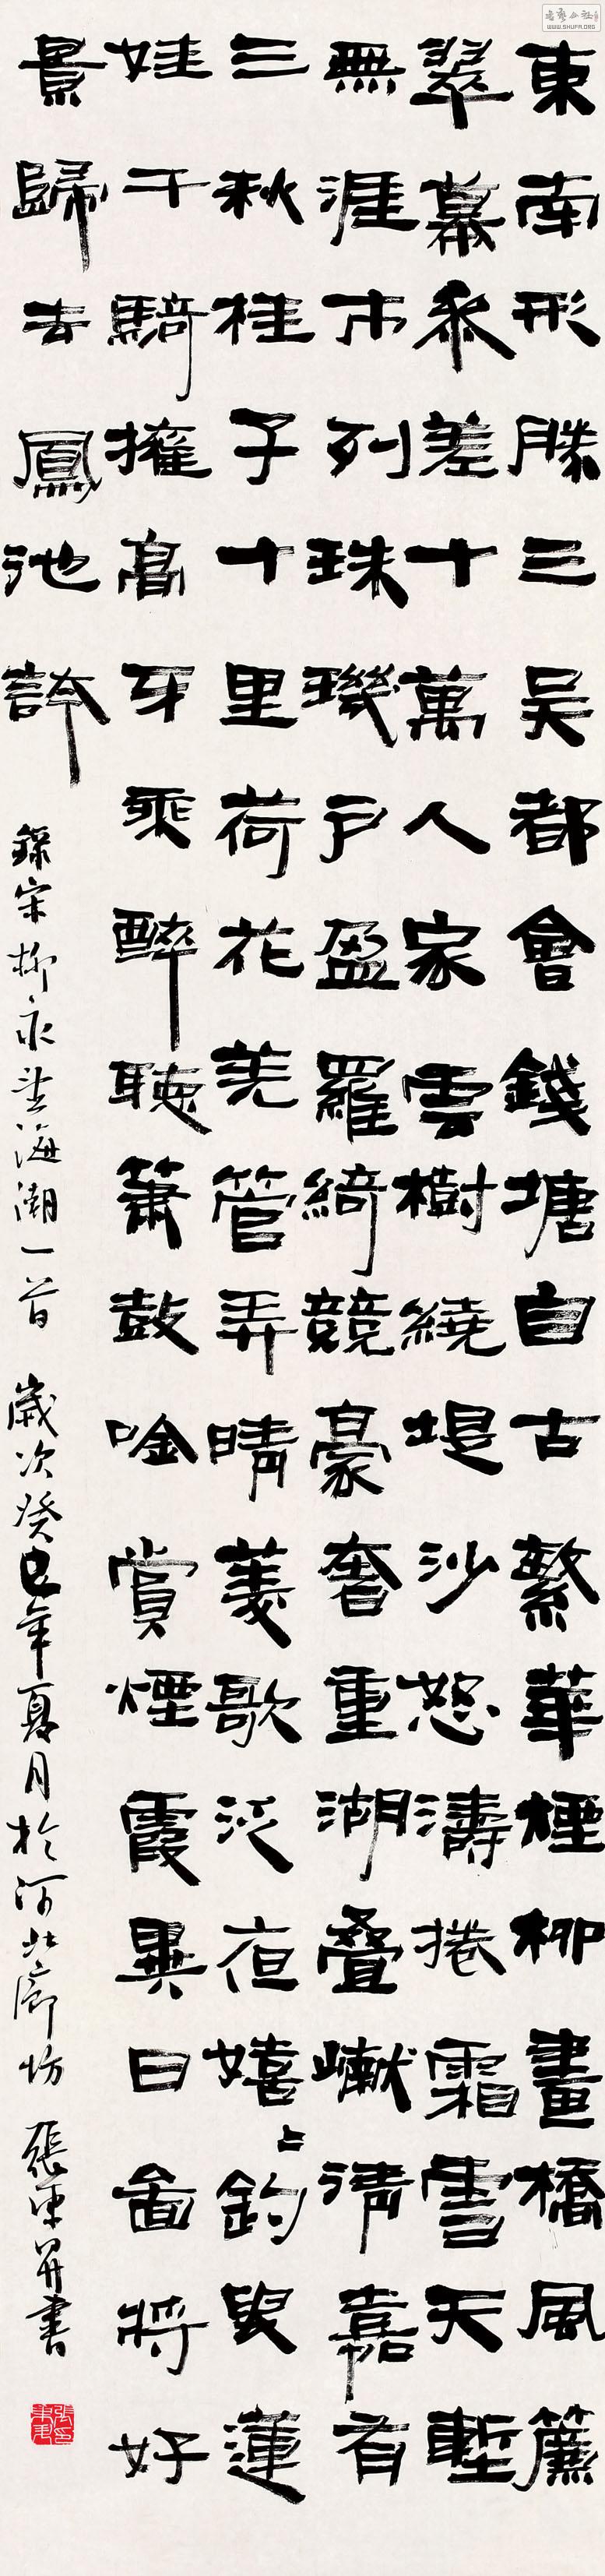 東南形勝三吴都會錢塘自古繁華煙柳畫橋風簾
翠幕參差十萬人家雲樹繞堤沙怒濤捲霜雪天塹
無涯市列珠璣户盈羅綺競豪奢重湖叠巘清嘉有
三秋桂子十里荷花羌管弄晴菱歌泛夜嬉〻釣叟蓮
娃千騎擁高牙乘醉聽簫鼓唫賞煙霞異日圖將好
景歸去鳳池誇
錄宋柳永望海潮一首 歲次癸巳年夏月於河北廊坊 張并書
WWW.SHUFA.ORG